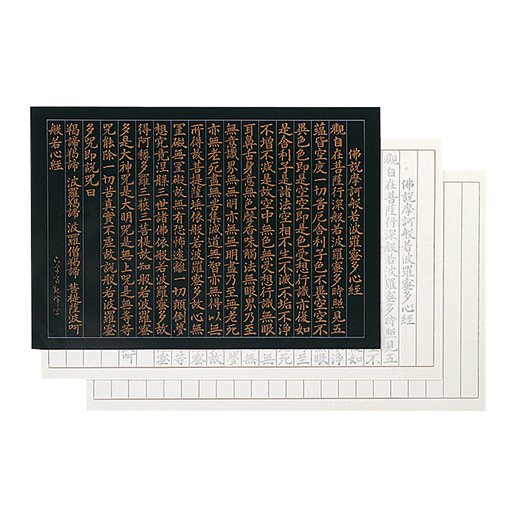 佛説摩訶般若波羅蜜多心經
觀自在菩薩行深般若波羅蜜多時照見五
蘊皆空度一切苦厄舍利子色不異空空不
異色色即是空空即是色受想行識亦復如
是舍利子是諸法空相不生不滅不垢不淨
不增不減是故空中無色無受想行識無眼
耳鼻舌身意無色聲香味觸法無眼界乃至
無意識界無無明亦無無明盡乃至無老死
亦無老死盡無苦集滅道無智亦無得以無
所得故菩提薩埵依般若波羅蜜多故心無
罣礙無罣礙故無有恐怖遠離一切顛倒夢
想究竟涅槃三世諸佛依般若波羅蜜多故
得阿耨多羅三藐三菩提故知般若波羅蜜
多是大神咒是大明咒是無上咒是無等等
咒能除一切苦真實不虚故説般若波羅蜜
多咒即説咒曰
羯諦羯諦 波羅羯諦 波羅僧羯諦 菩提薩婆訶
般若心經
佛説摩訶般若波羅蜜多心經
觀自在菩薩行深般若波羅蜜多時照見五
不
如
淨
眼
至
死